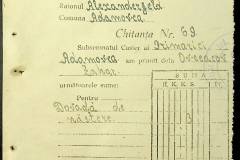 Raionul Alexanderfeld
Comuna Adamovca
Chitanţa Nr. 69
Subsemnatul Casier al Primăriei
Adamovca am primit dela Ovceacov
Zahar
următoarele sume:
SUMA
Pentru
Dovadă de
naştere
3